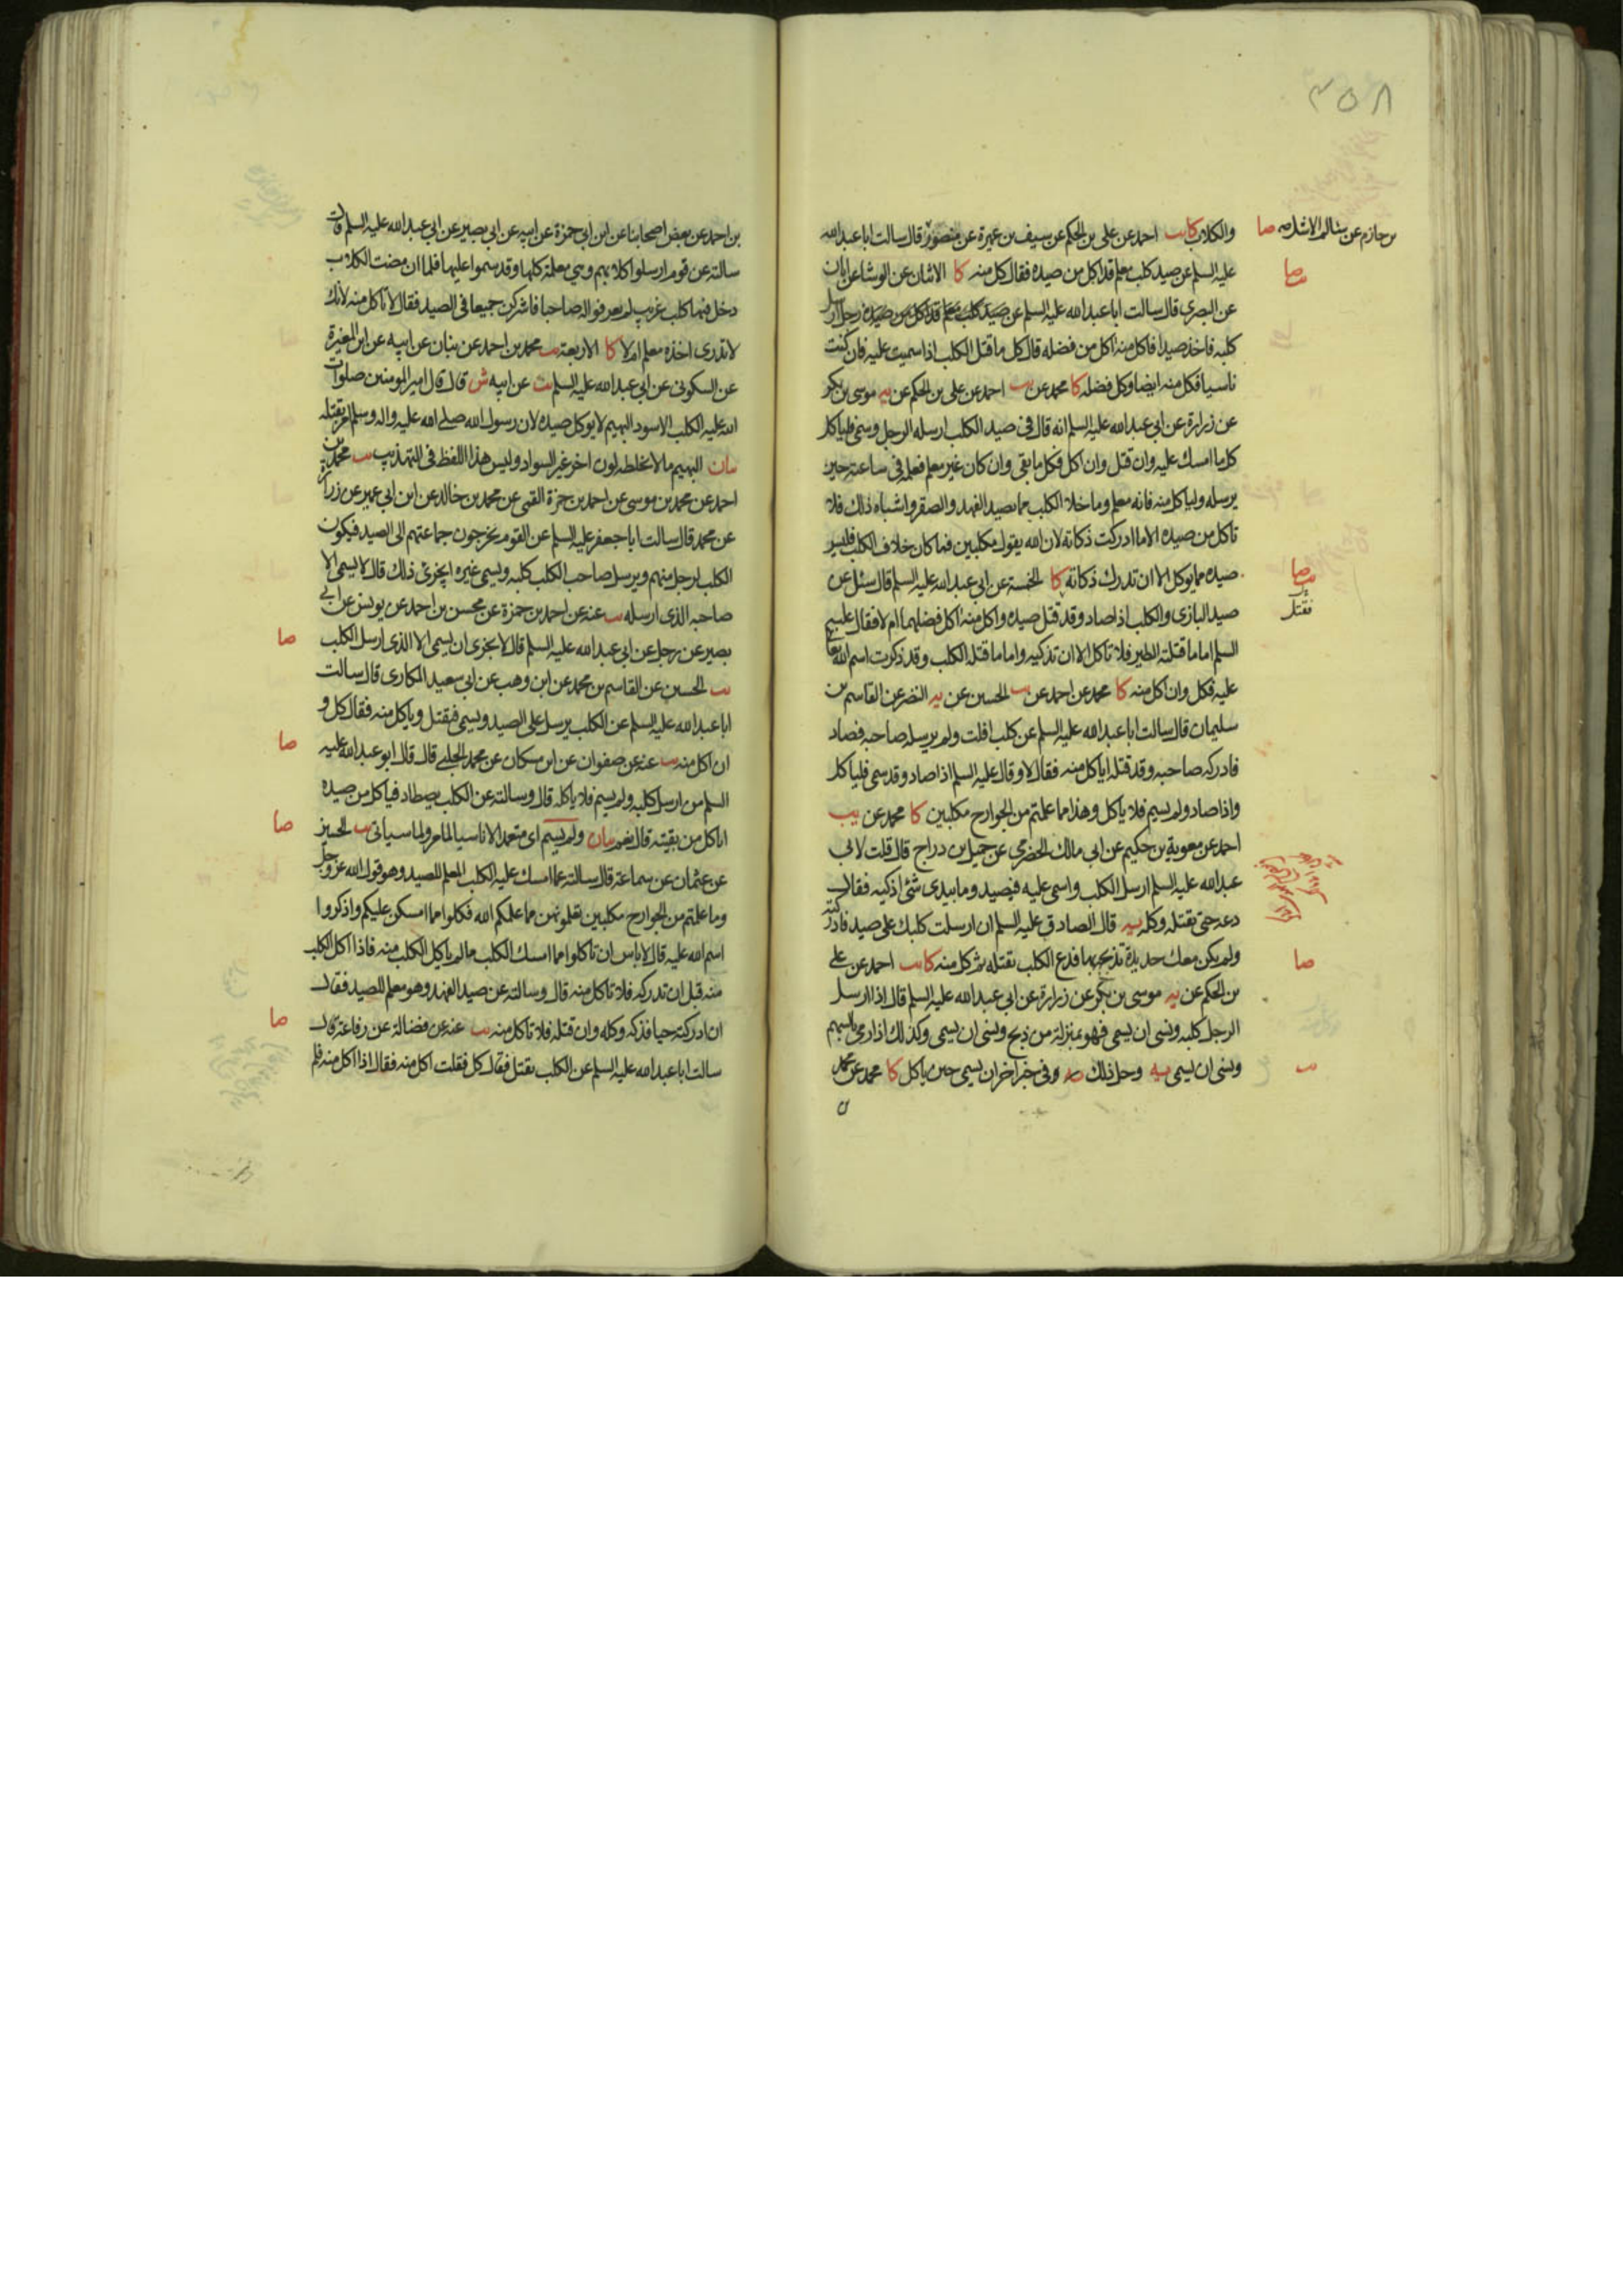 ٣٥٨
بن حازم عن سالم الاشل صا
والكلاب كا يب احمد عن علي بن الحكم عن سيف بن عميرة عن منصور قال سالت ابا عبدالله
عليه السلم عن صيد كلب معلم قد اكل من صيده فقال كل منه كا الاثنان عن الوشا عن ابان
عن البصري قال سالت ابا عبدالله عليه السلم عن رجل ارسل
كلبه فاخذ صيدا فاكل منه اكل من فضله قال كل ما قتل الكلب اذا سميت عليه فان كنت
ناسيا فكل منه ايضا وكل فضله كا محمد عن يب احمد عن علي بن الحكم عن يه موسى بن بكر
عن زرارة عن ابي عبدالله عليه السلم انه قال في صيد الكلب ارسله الرجل وسمى فلياكل
كل ما امسك عليه وان قتل وان اكل فكل ما بقى وان كان غير معلم فعلمه في ساعته حين
يرسله ولياكل منه فانه معلم وما خلا الكلب مما يصيد الفهد والصقر واشباه ذلك فلا
تاكل من صيده الا ما ادركت ذكاته لان الله يقول مكلبين فما كان خلاف الكلب فليس
صيده مما يوكل الا ان تدرك ذكاته كا الخمسة عن ابي عبدالله عليه السلم قال سئل عن
صيد البازى والكلب اذا صاد وقد قتل صيده واكل منه اكل فضلهما ام لا فقال عليه
السلم اما ما قتلته الطير فلا تاكل الا ان تذكيه واما ما قتله الكلب وقد ذكرت اسم الله
عليه فكل وان اكل منه كا محمد عن احمد عن يب الحسين عن يه النضر عن القاسم بن
سليمان قال سالت ابا عبدالله عليه السلم عن كلب افلت ولم يرسله صاحبه فصاد
فادركه صاحبه وقد قتله اياكل منه فقال لا وقال عليه السلم اذا صاد وقد سمى فلياكل
واذا صاد ولم يسم فلا ياكل وهذا مما علمتم من الجوارح مكلبين كا محمد عن يب
احمد عن معوية بن حكيم عن ابي مالك الحضرمي عن جميل بن دراج قال قلت لابي
عبدالله عليه السلم ارسل الكلب واسمى عليه فيصيد وما بيدى شئ اذكيه فقال
دعه حتى يقتله وكل يه قال الصادق عليه السلم ان ارسلت كلبك على صيد فادركته
ولم يكن معك حديدة تذبحه بها فدع الكلب يقتله ثم كل منه كا يب احمد عن علي
بن الحكم عن يه موسى بن بكر عن زرارة عن ابي عبدالله عليه السلم قال اذا ارسل
الرجل كلبه ونسى ان يسمى فهو بمنزلة من ذبح ونسى ان يسمى وكذلك اذا رمى بالسهم
ونسى ان يسمى يه وحل ذلك يه وفي خبر اخر ان يسمى حين ياكل كا محمد عن محمد
صا
صا
فقتل
صا
بن احمد عن بعض اصحابنا عن ابن ابي حمزة عن ابيه عن ابي بصير عن ابي عبدالله عليه السلم قال
سالته عن قوم ارسلوا كلابهم وهي معلمة كلها وقد سموا عليها فلما ان مضت الكلاب
دخل فيها كلب غريب لم يعرفوا له صاحبا فاشتركن جميعا في الصيد فقال لا تاكل منه لانك
لا تدرى اخذه معلم ام لا كا الاربعة يب محمد بن احمد عن بنان عن ابيه عن ابن المغيرة
عن السكوني عن ابي عبدالله عليه السلم يب عن ابيه ش قال قال امير المومنين صلوات
الله عليه الكلب الاسود البهيم لا يوكل صيده لان رسول الله صلى الله عليه واله وسلم امر بقتله
بيان البهيم ما لا يخلطه لون اخر غير السواد وليس هذا اللفظ في التهذيب يب محمد بن
احمد عن محمد بن موسى عن احمد بن حمزة القمي عن محمد بن خالد عن ابن ابي عمير عن زرارة
عن محمد قال سالت ابا جعفر عليه السلم عن القوم يخرجون جماعتهم الى الصيد فيكون
الكلب لرجل منهم ويرسل صاحب الكلب كلبه ويسمى غيره ايجزئ ذلك قال لا يسمى الا
صاحبه الذي ارسله يب عنه عن احمد بن حمزة عن محسن بن احمد عن يونس عن ابي
بصير عن رجل عن ابي عبدالله عليه السلم قال لا يجزى ان يسمى الا الذي ارسل الكلب
يب الحسين عن القاسم بن محمد عن ابن وهب عن ابي سعيد المكارى قال سالت
ابا عبدالله عليه السلم عن الكلب يرسل على الصيد ويسمى فيقتل وياكل منه فقال كل و
ان اكل منه يب عنه عن صفوان عن ابن مسكان عن محمد الحلبي قال قال ابو عبدالله عليه
السلم من ارسل كلبه ولم يسم فلا ياكله قال وسالته عن الكلب يصطاد فياكل من صيده
اناكل من بقيته قال نعم بيان ولم يسم اى متعمدا لا ناسيا لما مر ولما سياتى يب الحسين
عن عثمان عن سماعة قال سالته عما امسك عليه الكلب المعلم للصيد وهو قول الله عز وجل
وما علمتم من الجوارح مكلبين تعلمونهن مما علمكم الله فكلوا مما امسكن عليكم واذكروا
اسم الله عليه قال لا باس ان تاكلوا مما امسك الكلب ما لم ياكل الكلب منه فاذا اكل الكلب
منه قبل ان تدركه فلا تاكل منه قال وسالته عن صيد الفهد وهو معلم للصيد فقال
ان ادركته حيا فذكه وكله وان قتله فلا تاكل منه يب عنه عن فضالة عن رفاعة قال
سالت ابا عبدالله عليه السلم عن الكلب يقتل فقال كل فقلت اكل منه فقال اذا اكل منه فلم
صا
صا
صا
صا